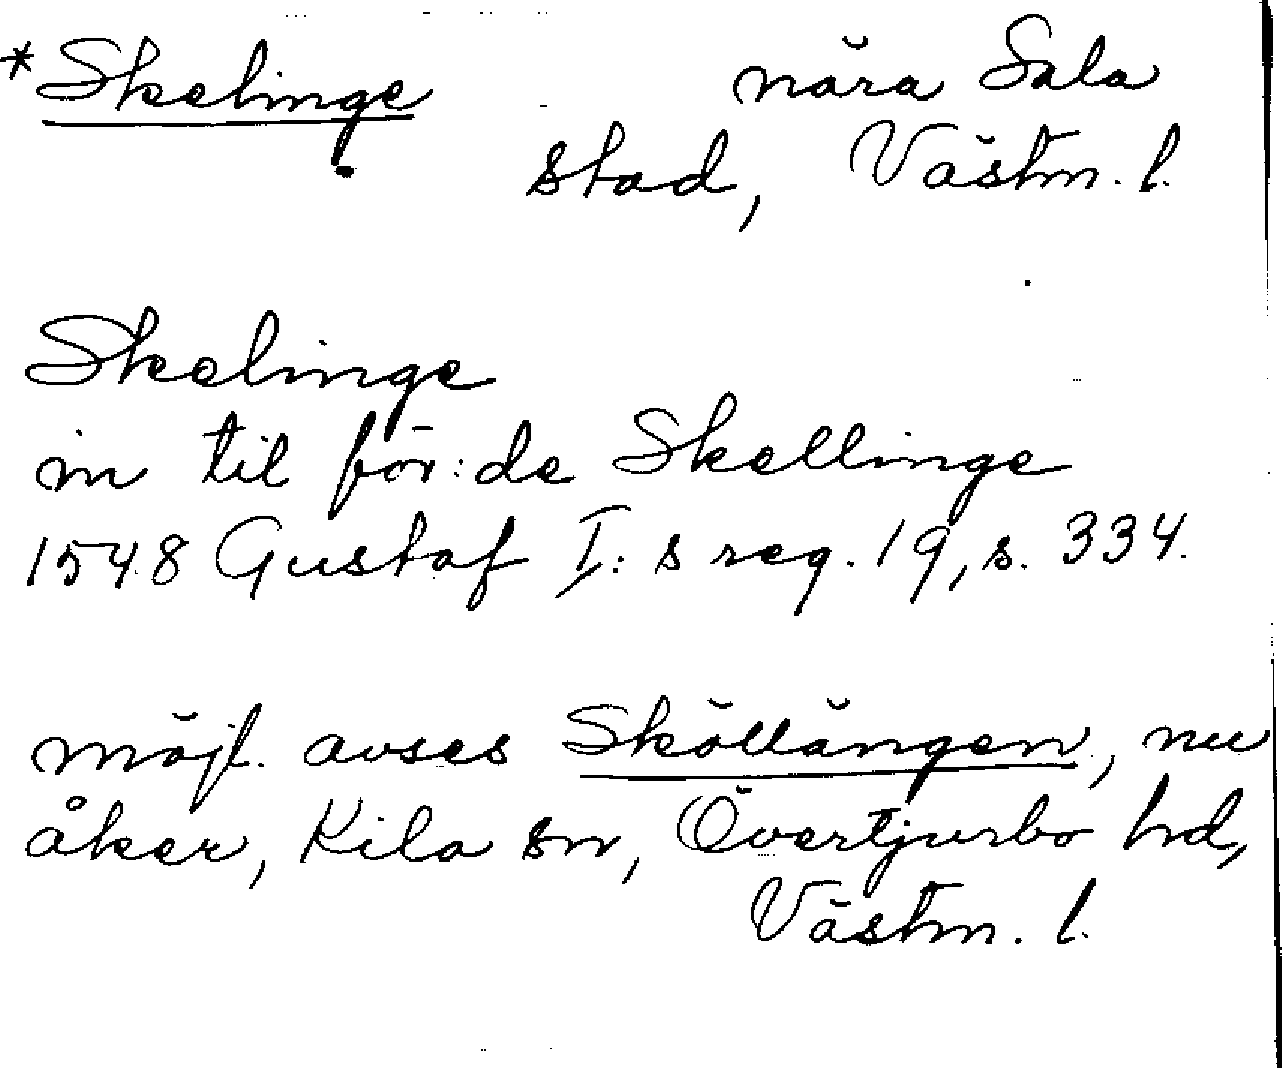 *Skelinge nära Sala
stad, Västm. l.
Skelinge
in til för:de Skellinge
1548 Gustaf I:s reg. 19, s. 334.
möjl. avses Sköllängen, nu
åker, Kila sn, Övertjurbo hd,
Västm. l.